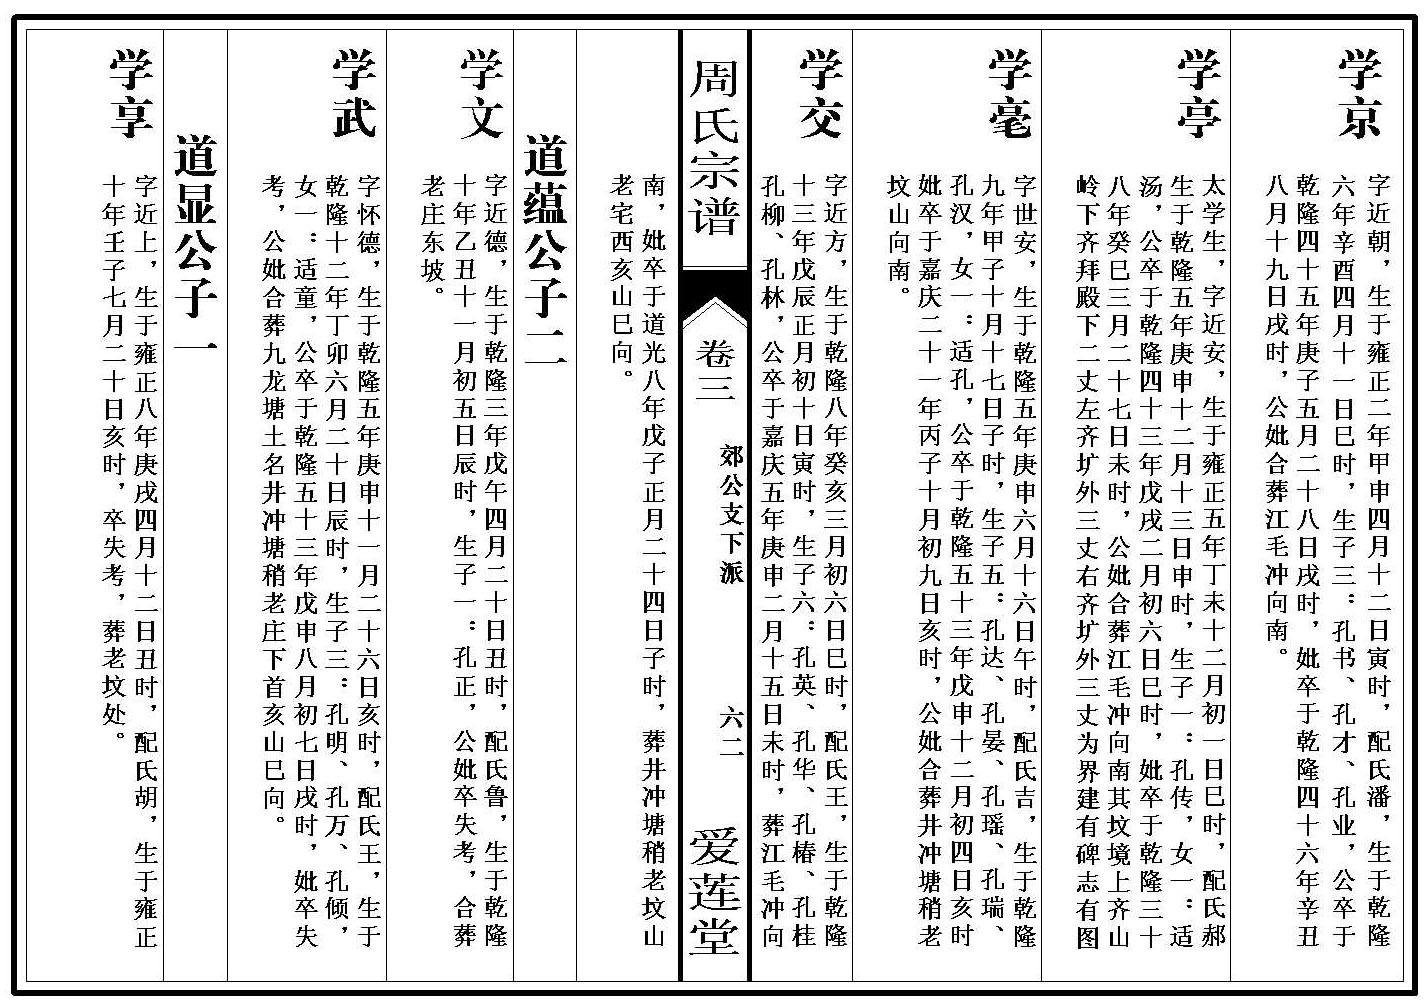 学京
字近朝，生于雍正二年甲申四月十二日寅时，配氏潘，生于乾隆
六年辛酉四月十一日巳时，生子三：孔书、孔才、孔业，公卒于
乾隆四十五年庚子五月二十八日戌时，妣卒于乾隆四十六年辛丑
八月十九日戌时，公妣合葬江毛冲向南。
学亭
太学生，字近安，生于雍正五年丁未十二月初一日巳时，配氏郝
生于乾隆五年庚申十二月十三日申时，生子一：孔传，女一：适
汤，公卒于乾隆四十三年戊戌二月初六日巳时，妣卒于乾隆三十
八年癸巳三月二十七日未时，公妣合葬江毛冲向南其坟境上齐山
岭下齐拜殿下二丈左齐圹外三丈右齐圹外三丈为界建有碑志有图
学毫
字世安，生于乾隆五年庚申六月十六日午时，配氏吉，生于乾隆
九年甲子十月十七日子时，生子五：孔达、孔晏、孔瑶、孔瑞、
孔汉，女一：适孔，公卒于乾隆五十三年戊申十二月初四日亥时
妣卒于嘉庆二十一年丙子十月初九日亥时，公妣合葬井冲塘稍老
坟山向南。
学交
字近方，生于乾隆八年癸亥三月初六日巳时，配氏王，生于乾隆
十三年戊辰正月初十日寅时，生子六：孔英、孔华、孔椿、孔桂
孔柳、孔林，公卒于嘉庆五年庚申二月十五日未时，葬江毛冲向
周氏宗谱
卷三
郊公支下派
六二
爱莲堂
南，妣卒于道光八年戊子正月二十四日子时，葬井冲塘稍老坟山
老宅西亥山巳向。
道蕴公子二
学文
字近德，生于乾隆三年戊午四月二十日丑时，配氏鲁，生于乾隆
十年乙丑十一月初五日辰时，生子一：孔正，公妣卒失考，合葬
老庄东坡。
学武
字怀德，生于乾隆五年庚申十一月二十六日亥时，配氏王，生于
乾隆十二年丁卯六月二十日辰时，生子三：孔明、孔万、孔倾，
女一：适童，公卒于乾隆五十三年戊申八月初七日戌时，妣卒失
考，公妣合葬九龙塘土名井冲塘稍老庄下首亥山巳向。
道显公子一
学享
字近上，生于雍正八年庚戌四月十二日丑时，配氏胡，生于雍正
十年壬子七月二十日亥时，卒失考，葬老坟处。